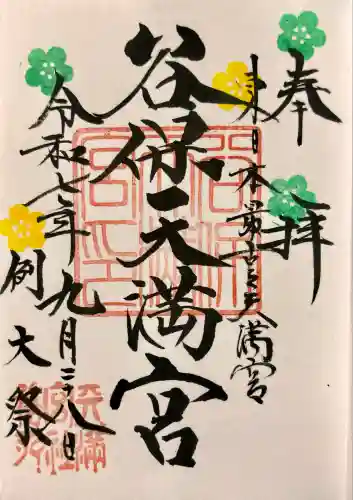 奉拝
東日本最古之天満宮
谷保天満宮
令和七年九月二八日
例大祭